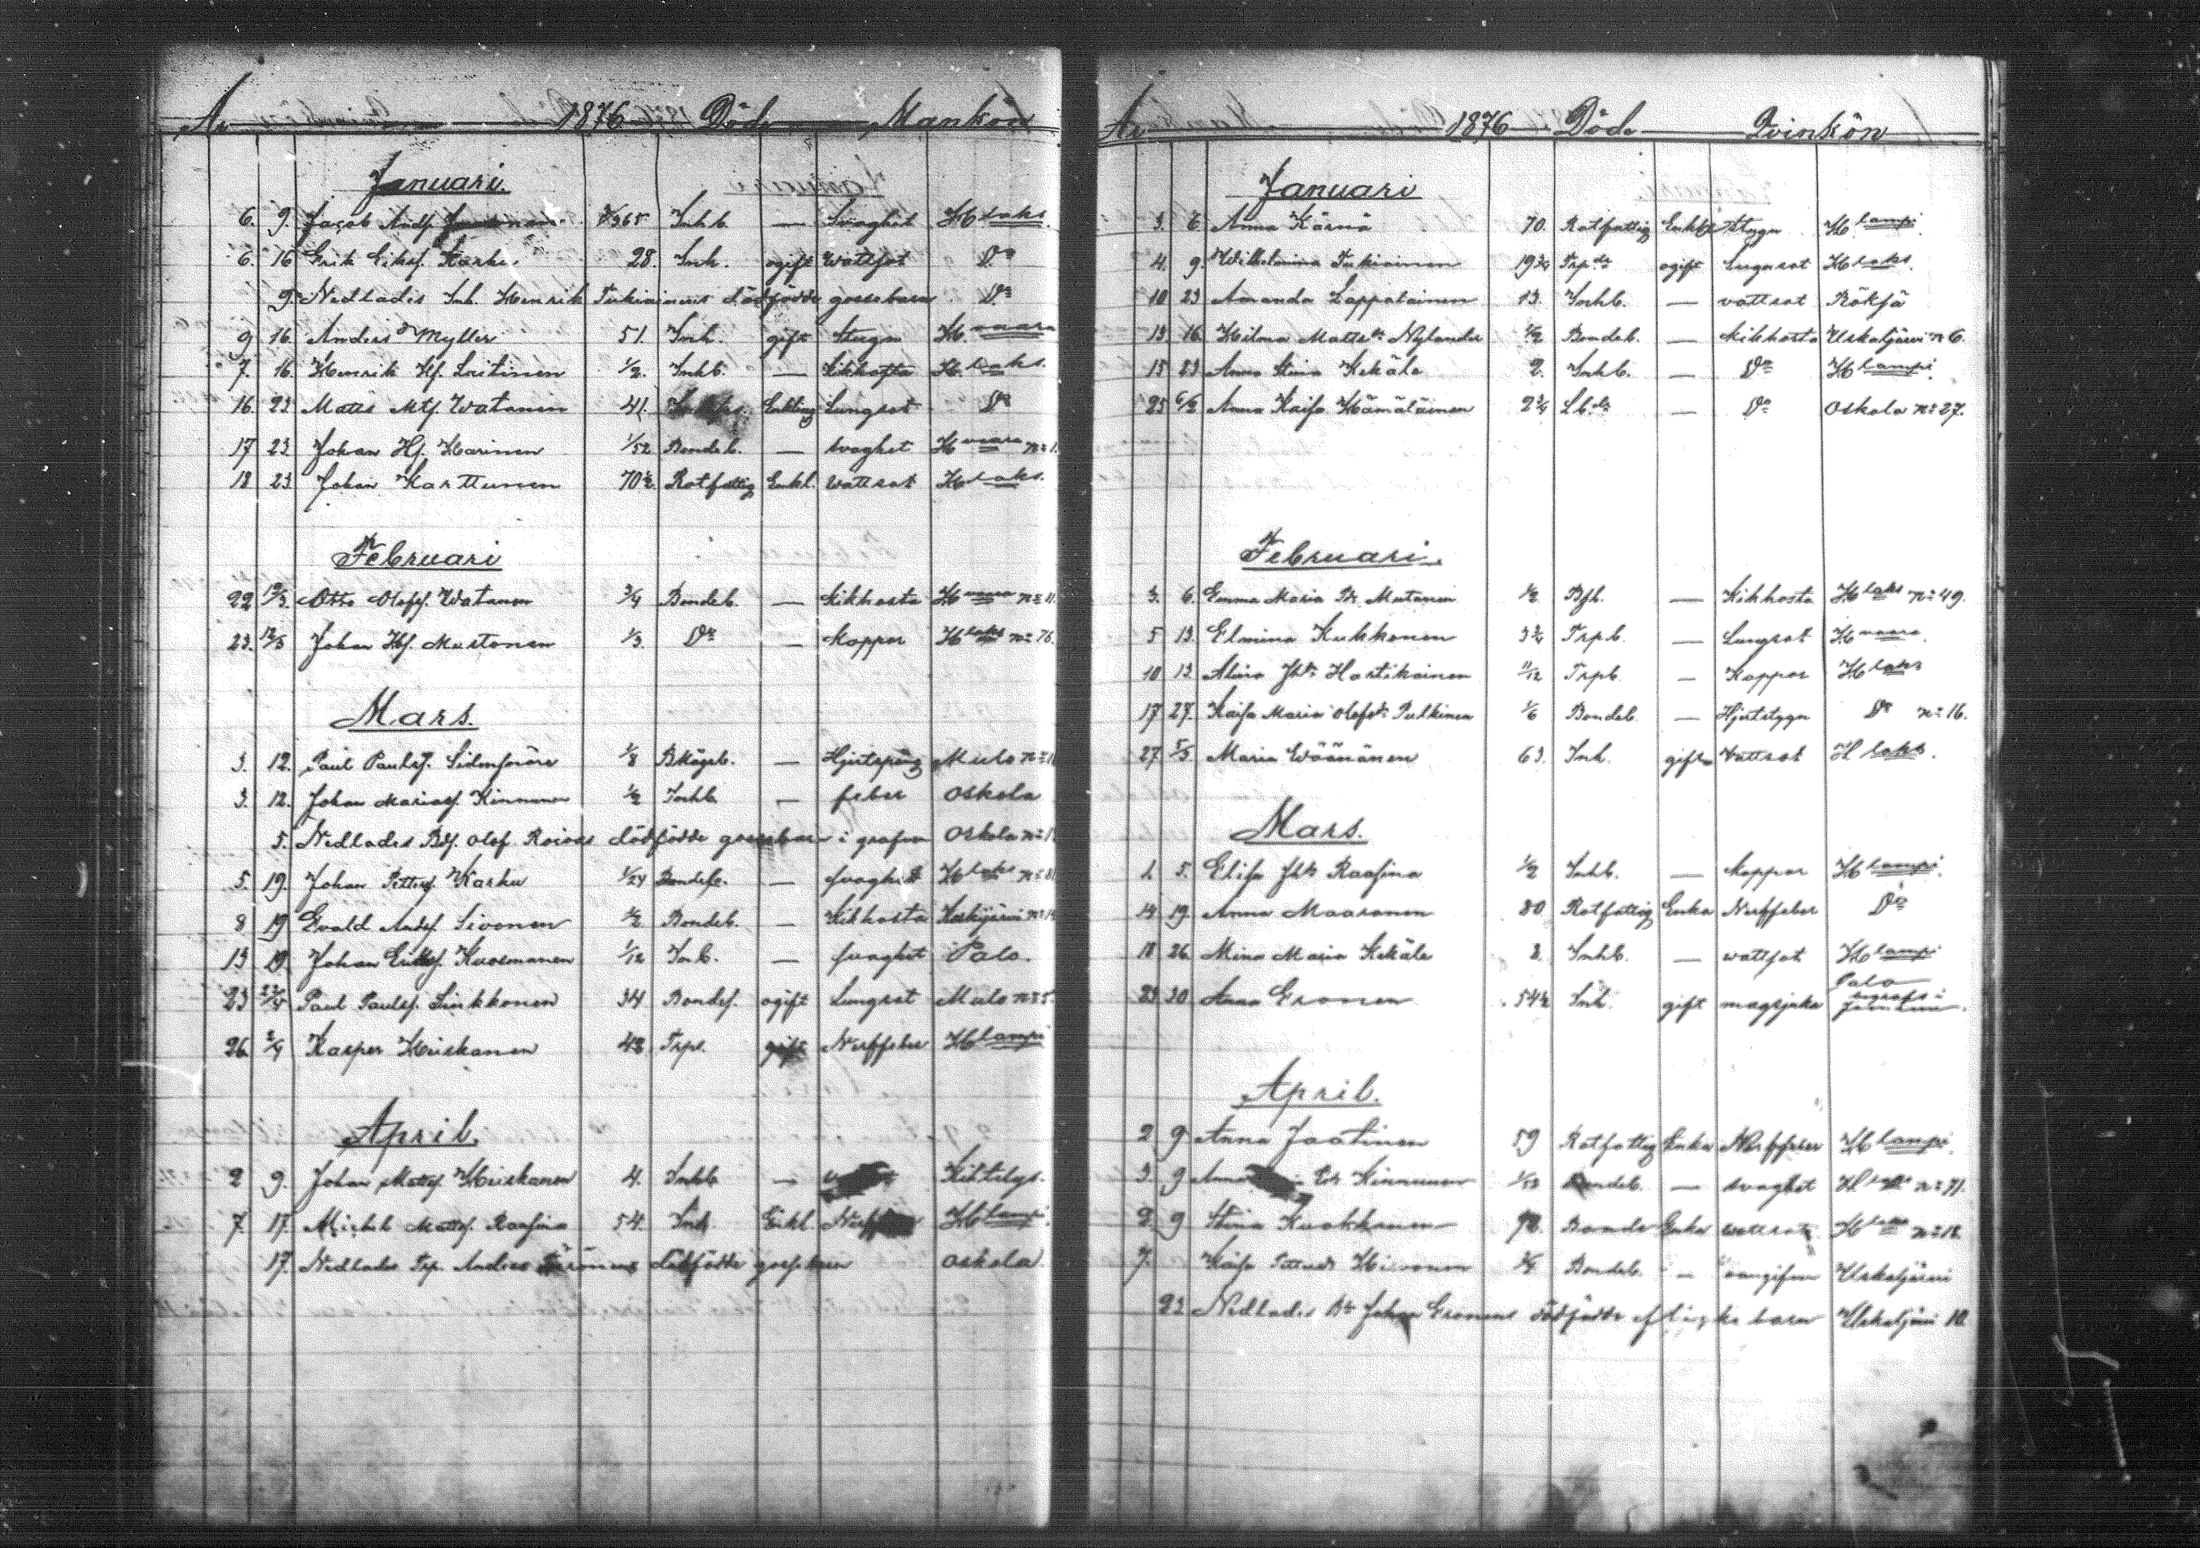 År 1876 Döde Mankön
Januari
6. 9. Jacob Andf. 2/365 Inhb. — Svaghet H laks.
6. 16 Erik Eriksf. Karhu 28. Inh. ogift Wattsot Do
9. Nedlades Inh. Henrik Tukiainens dödfödde gossebarn Do
9 16. Anders Myller 51. Inh. gift Stygn H. vaara
7. 16. Henrik Hf. Laitinen 1/2. Inhb. — Kikhosta H. laks.
16. 23 Matts Mtf. Watanen 41. Enkling Lungsot Do
17 23 Johan Hf. Harinen 1/52 Bondeb. — svaghet H vaara No 1.
18 23 Johan Karttunen 70 1/2. Rotfattig Enkl. Wattsot H laks.
Februari
22 12/3. Otto Olofsf. Watanen 3/4 Bondeb. — Kikhosta H vaara No 11.
23. 12/3 Johan Hf. Mustonen 1/3. Do — Koppor H laks No 76.
Mars.
3. 12. Paul Paulsf. Sidensnöre 1/8 — Hjertspång Mulo No 11
3. 12. Johan Mariasf. Kinnunen 1/2 Inhb — feber Oskola
5. Nedlades Bdf. Olof Roivas dödfödde gossebarn i grafven Oskola No 1.
5. 19. Johan Pettersf. Karhu 1/24 Bondeb. — svaghet H laks No 8
8 19 Evald Andsf. Sivonen 1/2 Bondeb. — Kikhosta
13 19 Johan Eriksf. Kuosmanen 1/12 Inb. — svaghet Palo.
23 Paul Paulsf. Sinkkonen 34 Bondes. ogift Lungsot Mulo No 5.
26. 2/4 Kasper Hiiskanen 48 Trp. gift Nerffeber H lampi
April.
2 9. Johan Mattsf. Hiiskanen 4. Inhb — Kiihtelys.
7. 17. Mickel Mattsf. Raasina 54. Inh Enkl. H lampi
17. Nedlades Trp. Anders dödfödde gossebarn Oskola.
År 1876 Döde Qvinkön
Januari
3. 6. Anna Kärnä 70. Rotfattig Enka Stygn H. lampi
4. 9. Wilhelmina Tukiainen 19 3/4 Trp.dr ogift Lungsot H laks.
10 23 Amanda Lappalainen 13. Inhb. — vattsot Röksä
13 16. Hilma Mattsdr Nylander 1/2 Bondeb. — Kikhosta Uskaljärvi No 6.
15 23 Anna Stina Kekäle 2. Inhb. — Do H lampi.
25 6/2 Anna Kaisa Hämäläinen 2 3/4 Lb.dr — Do Oskola No 27.
Februari.
3. 6. Emma Maria Mutanen 1/2 — Kikhosta H laks No 49.
5 13. Elmina Kukkonen 3 3/4 Trpb. — Lungsot H vaara.
10 13. Alina Jhdr Hartikainen 11/12 Trpb. — Koppor H laks
17 27. Kaisa Maria Olofsdr Pulkinen 1/6 Bondeb. — Hjertstygn Do No 16.
27 5/3 Maria Wäänänen 63. Inh. gift Vattsot H laks.
Mars.
1. 5. Elisa Jhdr Raasina 1/2 Inhb. — Koppor H lampi.
14 19. Anna Maaranen 80 Rotfattig Enka Nerffeber Do
18 26. Mina Maria Kekäle 2 Inhb. — wattsot H lampi
23 30 Anna Eronen 54 1/2 Inh. gift magsjuka Palo
April.
2 9 Anna Jaatinen 59 Rotfattig Enka Nerffeber H lampi.
3. 9 Anna Kinnunen Bondeb. — svaghet H laks No 71.
2. 9 Stina Kuokkanen Bonde Enka wattsot H laks No 18.
7. Kaisa Hirvonen Bondeb. — Uskaljärvi
23. Nedlades Johan Eronens dödfödde qflickebarn Uskaljärvi 10.